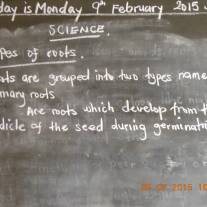 day is Monday 9th February 2015
SCIENCE.
pes of roots.
ots are grouped into two types name
mary roots
Are roots which develop from t
dicle of the seed during germinati